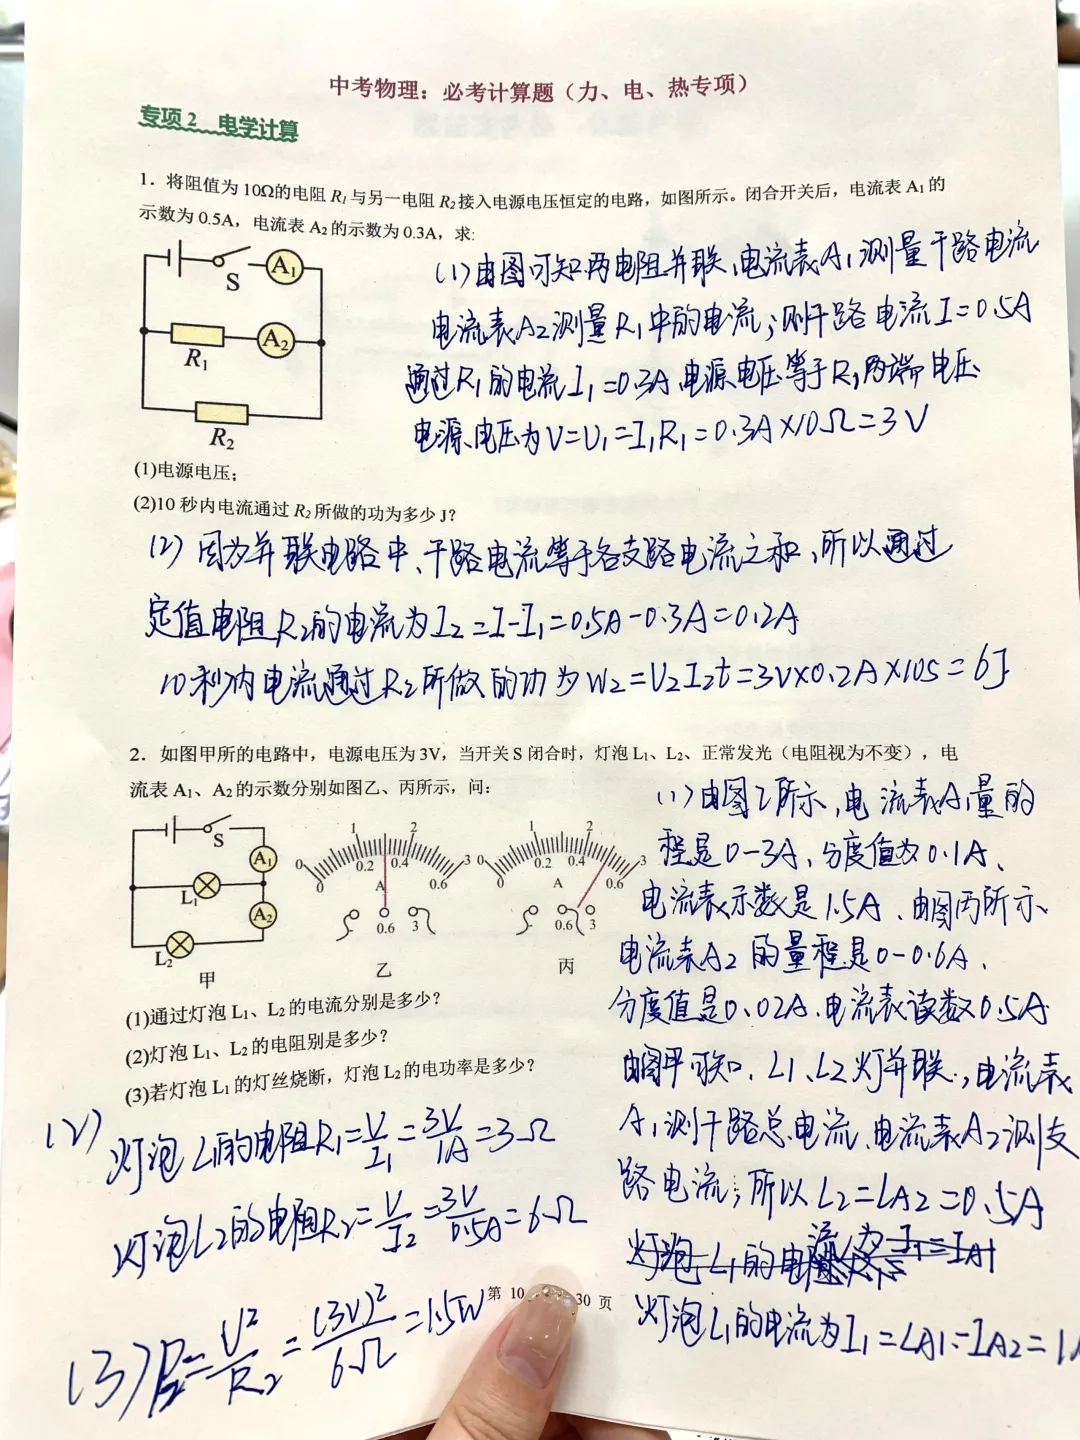 中考物理：必考计算题（力、电、热专项）
专项 2 电学计算
1．将阻值为 10Ω的电阻 R₁ 与另一电阻 R₂ 接入电源电压恒定的电路，如图所示。闭合开关后，电流表 A₁ 的
示数为 0.5A，电流表 A₂ 的示数为 0.3A，求:
S A₁
R₁ A₂
R₂
(1)由图可知两电阻并联,电流表A₁测量干路电流
电流表A₂测量R₁中的电流;则干路电流I=0.5A
通过R₁的电流I₁=0.3A 电源电压等于R₁两端电压
电源电压为V=U₁=I₁R₁=0.3A×10Ω=3V
(1)电源电压；
(2)10 秒内电流通过 R₂ 所做的功为多少 J？
(2) 因为并联电路中、干路电流等于各支路电流之和,所以通过
定值电阻R₂的电流为I₂=I-I₁=0.5A-0.3A=0.2A
10秒内电流通过R₂所做的功为W₂=U₂I₂t=3V×0.2A×10S=6J
2．如图甲所的电路中，电源电压为 3V，当开关 S 闭合时，灯泡 L₁、L₂、正常发光（电阻视为不变），电
流表 A₁、A₂ 的示数分别如图乙、丙所示，问：
S A₁ L₁ A₂ L₂ 甲
0 1 2 3
0 0.2 0.4 0.6
A
0.6 3
乙
0 1 2 3
0 0.2 0.4 0.6
A
0.6 3
丙
(1)由图乙所示,电流表A₁量的
程是0-3A、分度值为0.1A、
电流表示数是1.5A、由图丙所示、
电流表A₂的量程是0-0.6A、
分度值是0.02A.电流表读数0.5A
由图甲可知、L1、L2灯并联.,电流表
A₁测干路总电流、电流表A₂测支
路电流;所以L₂=LA2=0.5A
灯泡L₁的电流为I₁=IA1
灯泡L₁的电流为I₁=LA1-IA2=1A
(1)通过灯泡 L₁、L₂ 的电流分别是多少？
(2)灯泡 L₁、L₂ 的电阻别是多少？
(3)若灯泡 L₁ 的灯丝烧断，灯泡 L₂ 的电功率是多少？
(2) 灯泡L₁的电阻R₁=V/I₁=3V/1A=3Ω
灯泡L2的电阻R₂=V/I₂=3V/0.5A=6Ω
(3) P₂=U²/R₂=(3V)²/6Ω=1.5W
第 10 30 页